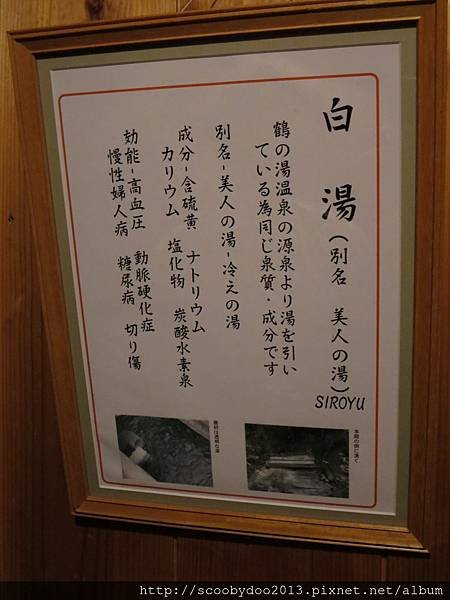 白湯(別名 美人の湯)
SIROYU
鶴の湯温泉の源泉より湯を引い
ている為同じ泉質・成分です
別名-美人の湯-冷えの湯
成分-含硫黄 ナトリウム
カリウム 塩化物 炭酸水素泉
効能-高血圧 動脈硬化症
慢性婦人病 糖尿病 切り傷
本館の側に湧く
最初は透明な湯
http://scoobydoo2013.pixnet.net/album